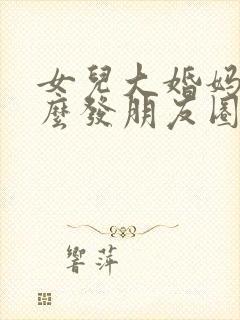 女兒大婚媽
麼發朋友圈
響萍